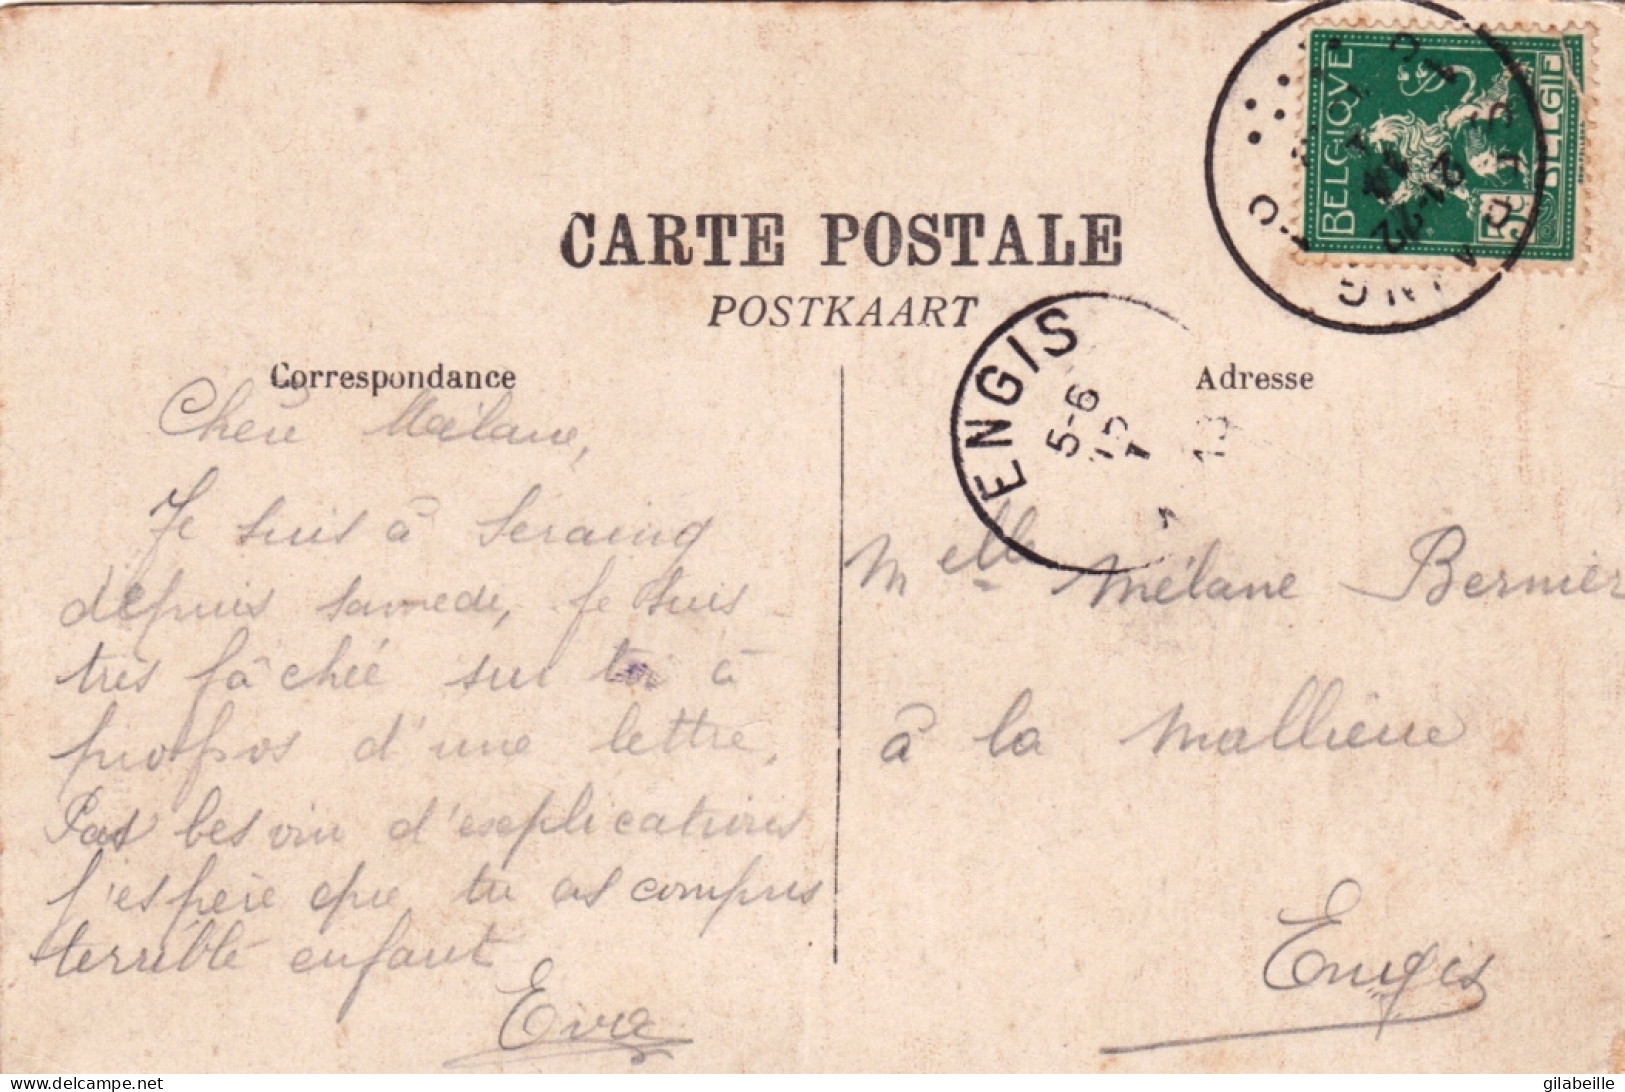 BELGIQUE
BELGIË
5
CARTE POSTALE
POSTKAART
ENGIS
5-6
Correspondance
Adresse
Chère Mélane,
Je suis à Seraing
depuis samedi, je suis
très fâchée sur toi à
propos d'une lettre.
Pas besoin d'explications
j'espère que tu as compris
terrible enfant
Eva
Melle Mélane Bernier
à la Mallieue
Engis
delcampe.net
gilabeille